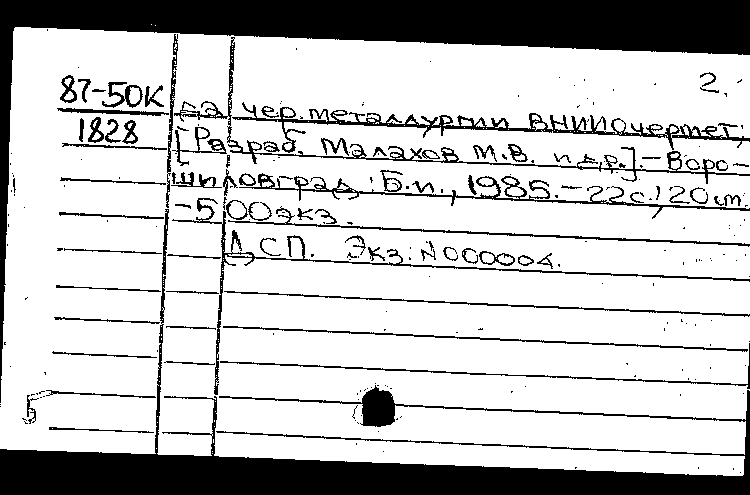 2.
87-50К да чер. металлургии ВНИИОчермет;
1828 [Разраб. Малахов М.В. и др.].-Воро-
шиловград: Б.и., 1985.-22с.; 20 см.
-500экз.
ДСП. Экз. N000004.